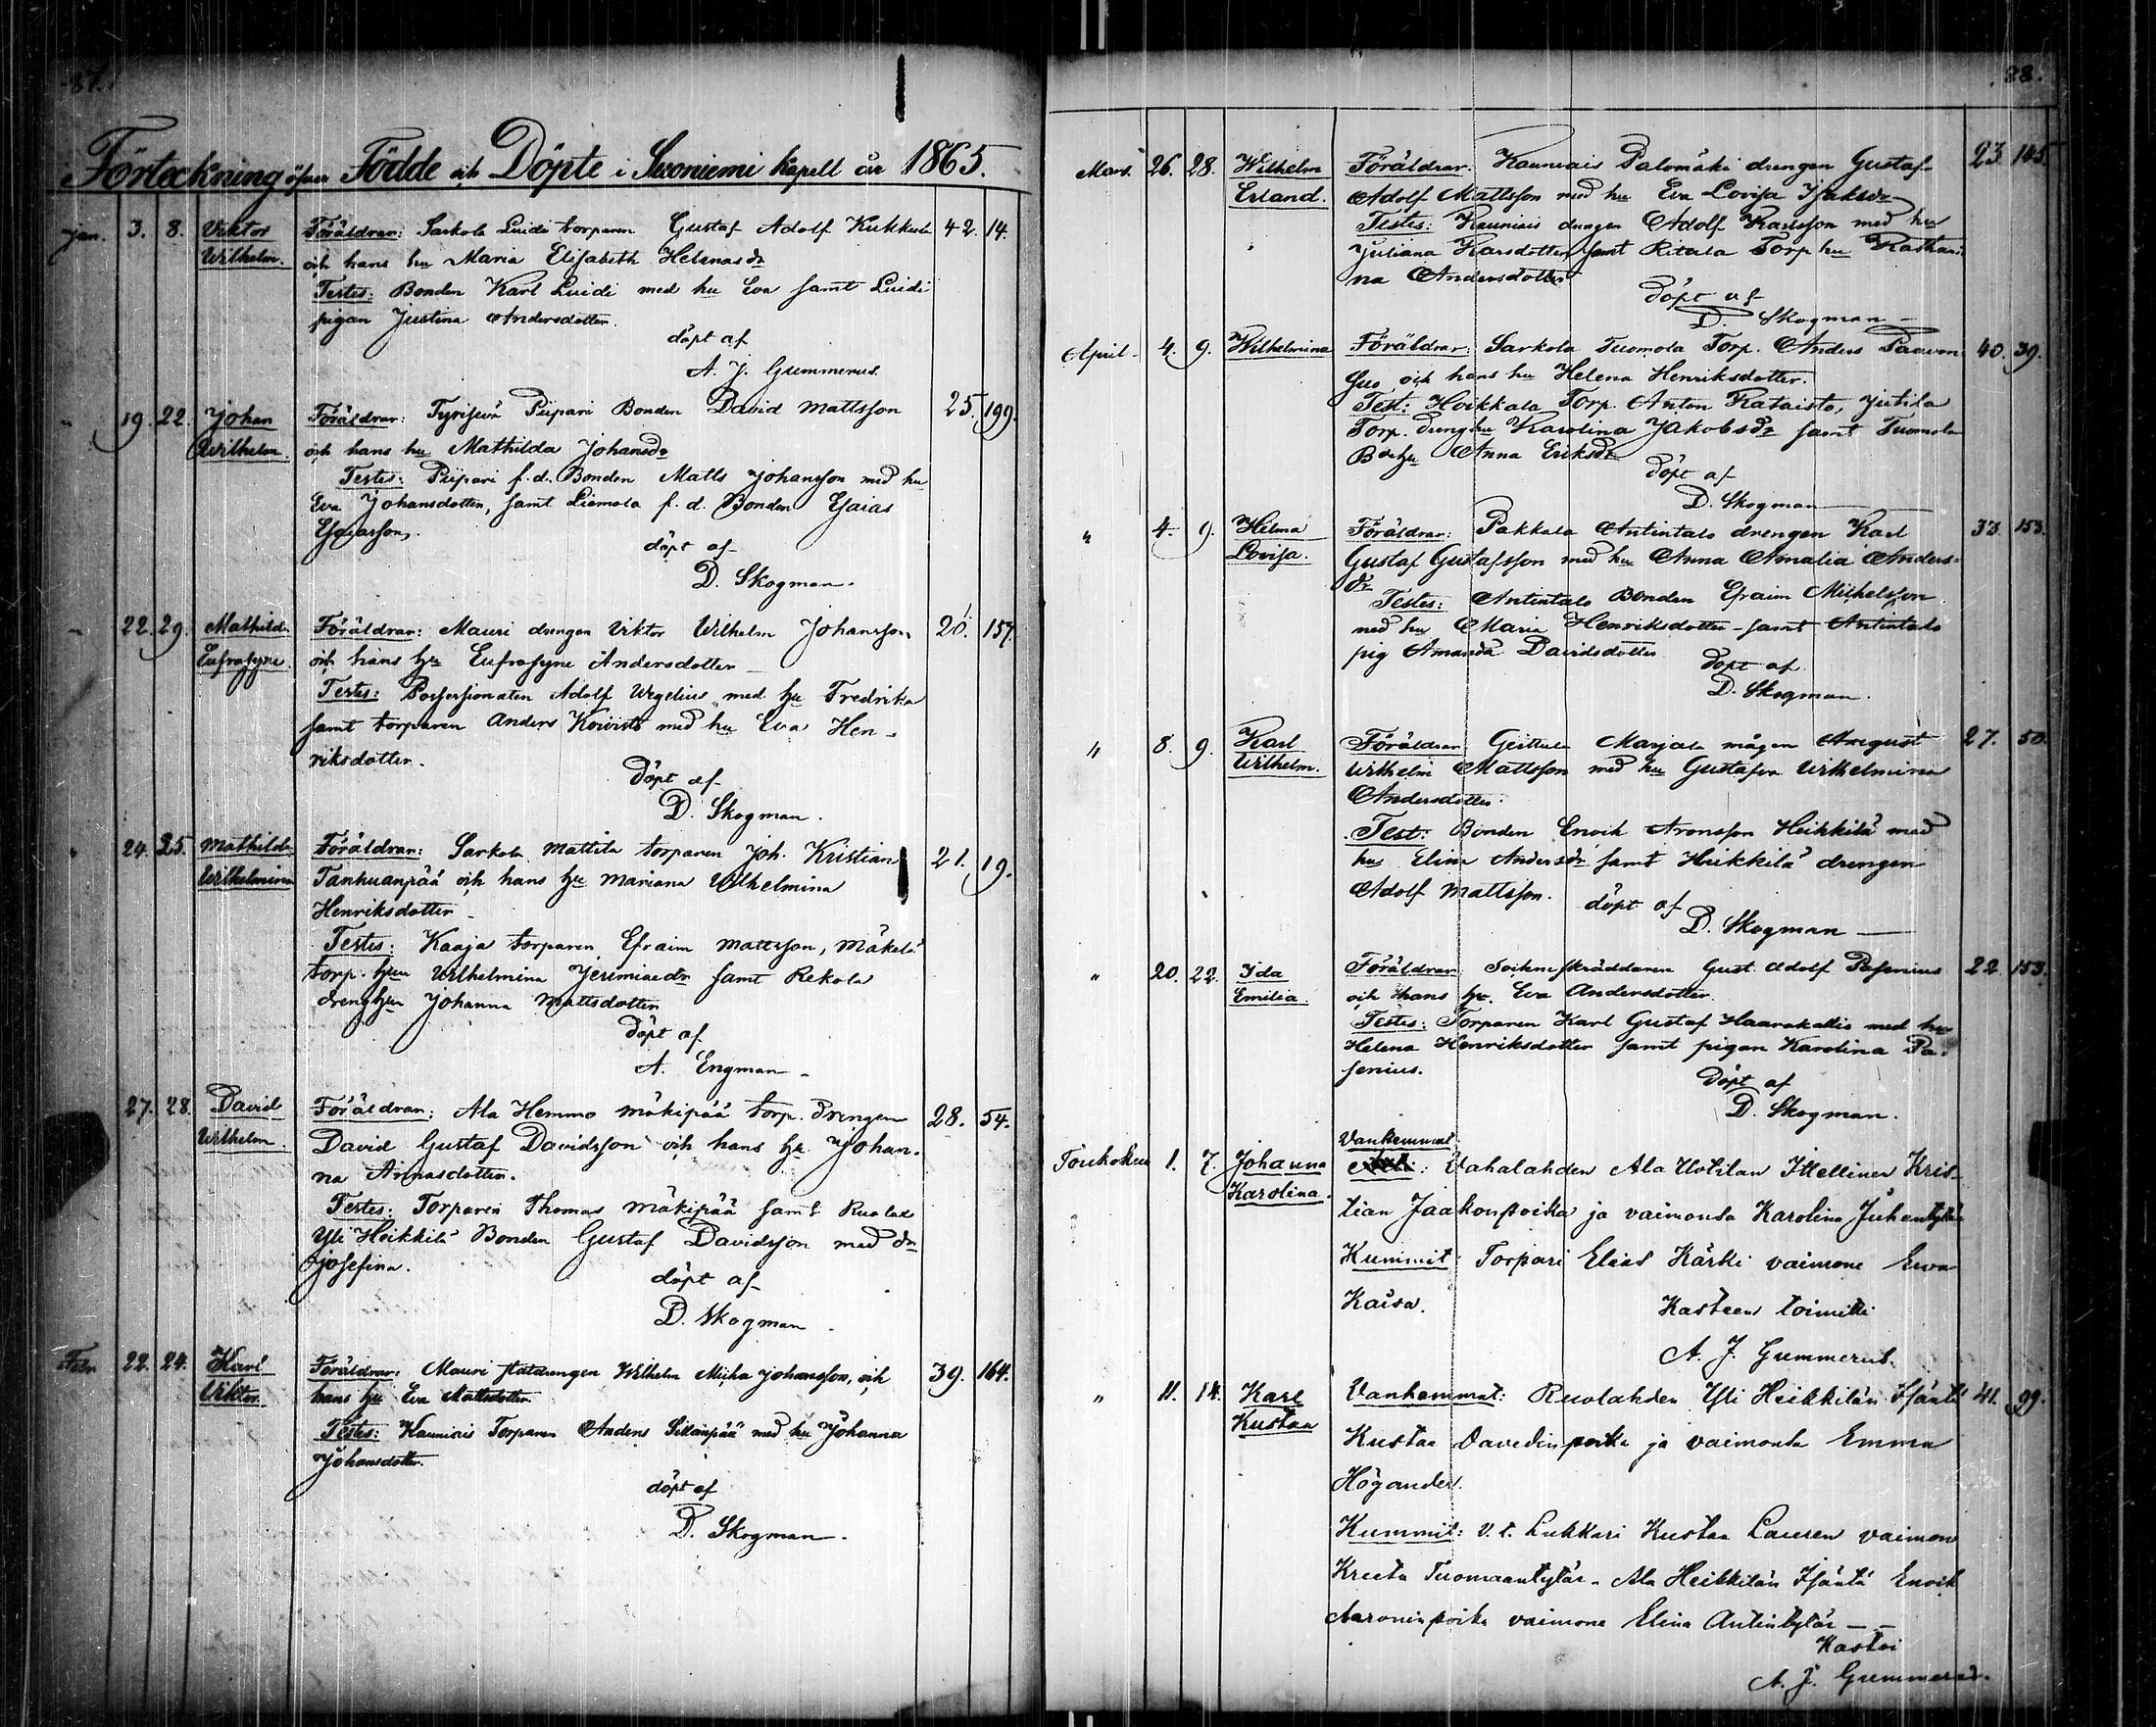 87.
Förteckning öfver Födde och Döpte i Suoniemi Kapell år 1865.
Jan. 3. 8. Viktor Wilhelm. Föräldrar: Sarkola Luidi torparen Gustaf Adolf Kukkola 42. 14.
och hans hu Maria Elisabeth Helenasdr
Testes: Bonden Karl Luidi med hu Eva samt Luidi
pigan Justina Andersdotter.
döpt af
A. J. Gummerus.
" 19. 22. Johan Wilhelm. Föräldrar: Piipari Bonden David Mattsson 25. 199.
och hans hu Mathilda Johansdr
Testes: Piipari f. d. Bonden Matts Johansson med hu
Eva Johansdotter, samt Liemola f. d. Bonden Esaias
Esaiasson.
döpt af
D. Skogman.
" 22. 29. Mathilda Eufrosyne. Föräldrar: Mauri drengen Viktor Wilhelm Johansson 20. 157.
och hans hu Eufrosyne Andersdotter
Testes: Possessionaten Adolf Wegelius med hu Fredrika
samt torparen Anders Koivisto med hu Eva Hen-
riksdotter.
Döpt af
D. Skogman.
" 24. 25. Mathilda Wilhelmina Föräldrar: Sarkola Mattila torparen Joh. Kristian 21. 19.
Tanhuanpää och hans hu Mariana Wilhelmina
Henriksdotter
Testes: Kaaja torparen Efraim Mattsson, Mäkelä
torp. hun Wilhelmina Jeremiaedr samt Rekola
drenghun Johanna Mattsdotter
Döpt af
A. Engman
27. 28. David Wilhelm. Föräldrar: Ala Hemmo Mäkipää torp. Drengen 28. 54.
David Gustaf Davidsson och hans hu Johan-
na Annasdotter.
Testes: Torparen Thomas Mäkipää samt
Yli Heikkilä Bonden Gustaf Davidsson med dr
Josefina.
döpt af
D. Skogman
Febr 22. 24. Karl Viktor. Föräldrar: Mauri statdrengen Wilhelm Johansson, och 39. 164.
hans hu Eva Mattsdotter
Testes: Kauniais Torparen Anders Sillanpää med hu Johanna
Johansdotter.
döpt af
D. Skogman.
88.
Mars. 26. 28. Wilhelm Erland. Föräldrar: Kauniais Palomäki drengen Gustaf 23. 145.
Adolf Mattsson med hu Eva Lovisa Isaksdr
Testes: Kauniais drengen Adolf Karlsson med hu
Juliana Karsdotter samt Ritala Torp hu Kathari-
na Andersdotter
döpt af
D. Skogman
April. 4. 9. Wilhelmina Föräldrar: Sarkola Tuomola Torp. Anders Paavon- 40. 39.
och hans hu Helena Henriksdotter.
Test: Hoikkala Torp. Anton Kataisto, Jutila
Torp. drenghu Karolina Jakobsdr samt Tuomola
Bdehu Anna Eriksdr
Döpt af
D. Skogman
" 4. 9. Hilma Lovisa. Föräldrar: Pakkala Antintalo drengen Karl 33. 153.
Gustaf Gustafsson med hu Anna Amalia Anders-
dr
Testes: Antintalo Bonden Efraim Michelsson
med hu Maria Henriksdotter samt Antintalo
pig Amanda Davidsdotter
Döpt af
D. Skogman.
" 8. 9. Karl Wilhelm. Föräldrar Marjala mågen August 27. 50.
Wilhelm Mattsson med hu Gustafva Wilhelmina
Andersdotter.
Test: Bonden Enoik Aronsson Heikkilä med
hu Elina Andersdr samt Heikkilä drengen
Adolf Mattsson.
döpt af
D. Skogman
" 20. 22. Ida Emilia. Föräldrar: Gust. Adolf Pasenius 22. 153.
och hans hu. Eva Andersdotter.
Testes: Torparen Karl Gustaf Haarakallio med hu
Helena Henriksdotter samt pigan Karolina Pa-
senius.
Döpt af
D. Skogman.
Toukokuu 1. 7. Johanna Karolina. Vanhemmat
: Vahalahden Ala Uotilan Itsellinen Kris-
tian Jaakonpoika ja vaimonsa Karolina Juhontytär
Kummit: Torpari Elias Kärki vaimone Ewa
Kaisa.
Kasteen toimitti
A. J. Gummerus.
" 11. 14. Karl Kustaa Vanhemmat: Ruolahden Yli Heikkilän Isäntä 41. 99.
Kustaa Davedinpoika ja vaimonsa Emma
Högander.
Kummit: V. t. Lukkari Kustaa Lauren vaimone
Kreeta Tuomaantytär. Ala Heikkilän Isäntä Enoik
Aaroninpoika vaimone Elina Antintytär
Kastoi
A. J. Gummerus.